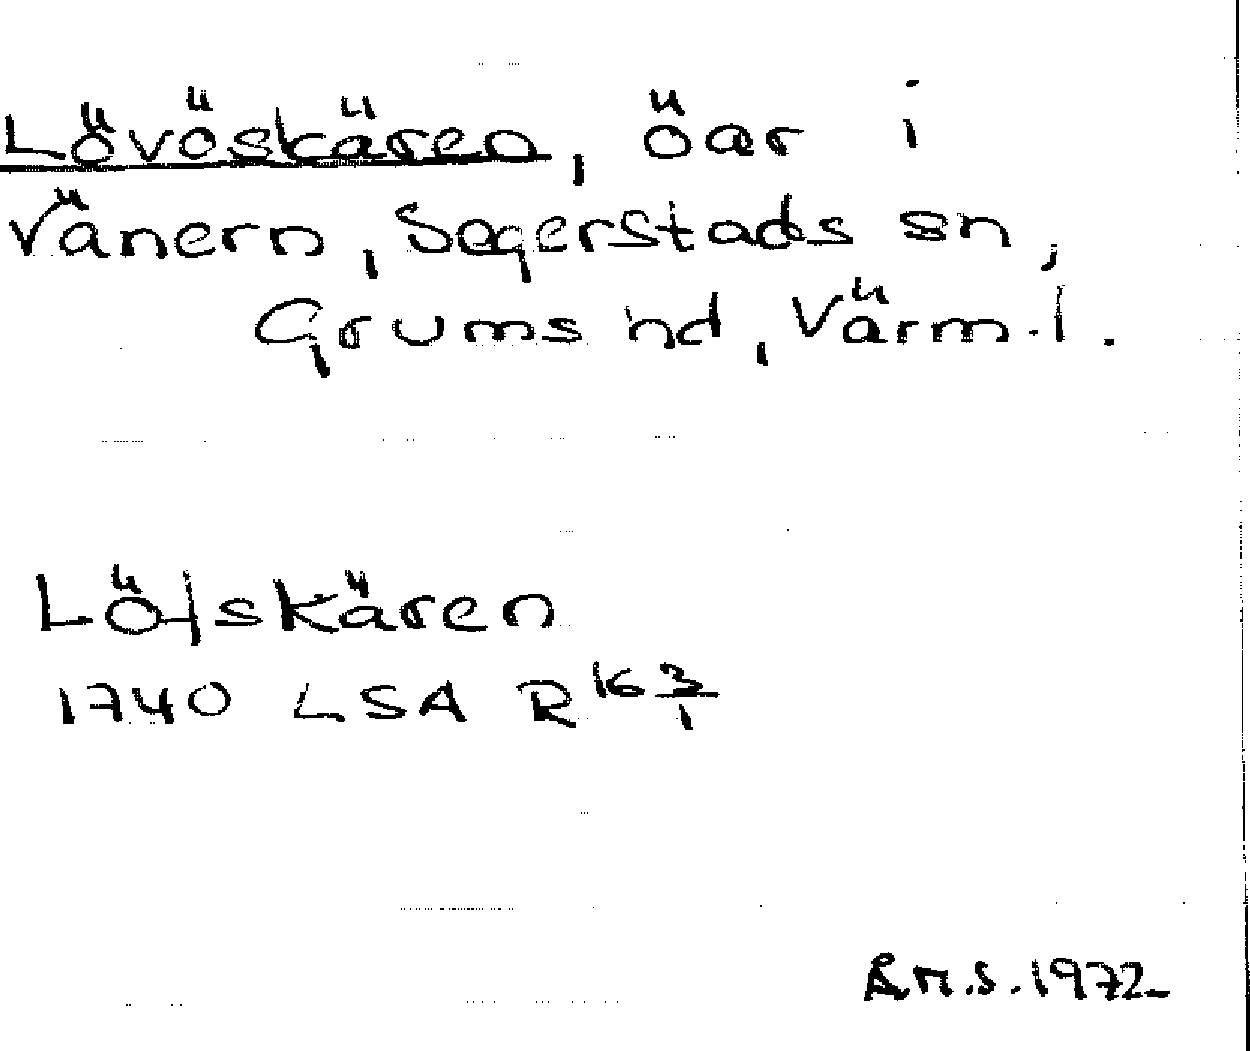 Lövöskären, öar i
Vänern, Segerstads sn,
Grums hd, Värml.
Löfskären
1740 LSA R 16 3/1
R.M.S. 1972